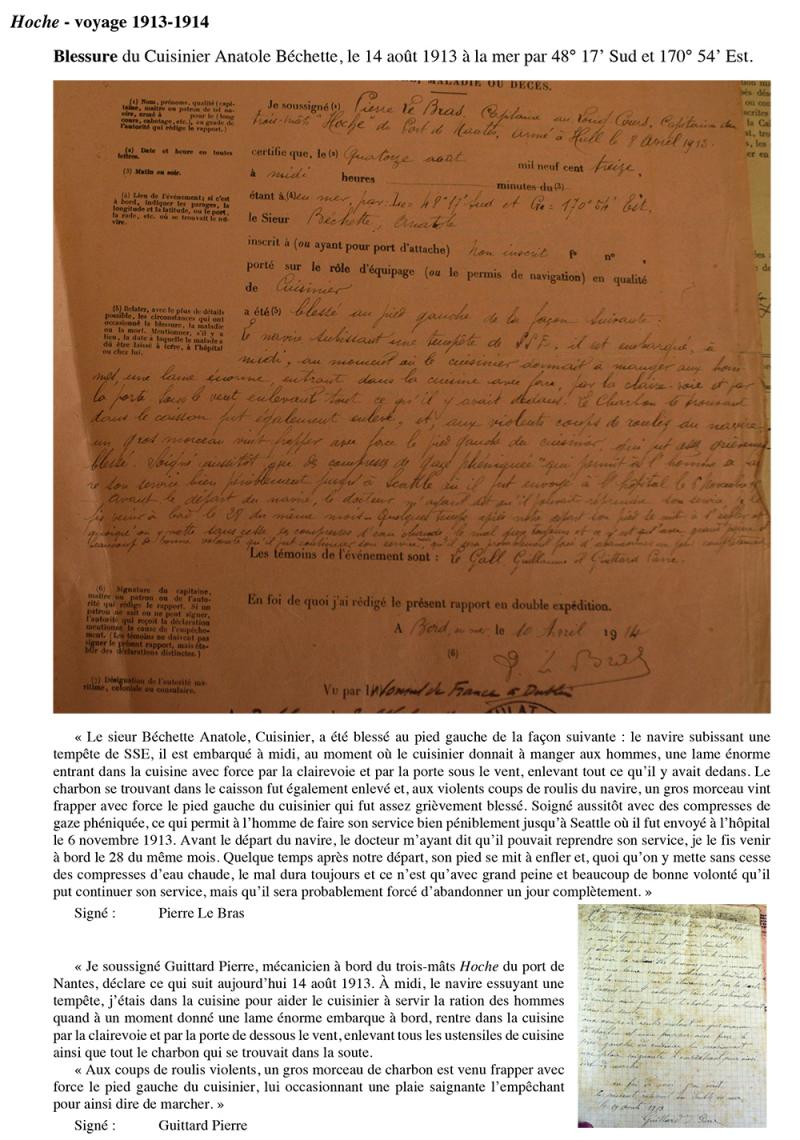 Hoche - voyage 1913-1914
Blessure du Cuisinier Anatole Béchette, le 14 août 1913 à la mer par 48° 17’ Sud et 170° 54’ Est.
MALADIE OU DÉCÈS.
(1) Nom, prénoms, qualité (capi-
taine, maître ou patron de tel na-
vire, armé à pour le (long
cours, cabotage, etc.), ou grade de
l'autorité qui rédige le rapport.)
Je soussigné (1) Pierre Le Bras, Capitaine au Long Cours, Capitaine du
trois-mâts "Hoche" du Port de Nantes, armé à Hull le 8 avril 1913.
(2) Date et heure en toutes
lettres.
(3) Matin ou soir.
certifie que, le (2) Quatorze août mil neuf cent treize,
à midi heures minutes du (3)
(4) Lieu de l'événement; si c'est
à bord, indiquer les parages, la
longitude et la latitude, ou le port,
la rade, etc. où se trouvait le na-
vire.
étant à (4) en mer, par: = 48° 17' Sud et = 170° 54' Est.
le Sieur Béchette, Anatole
inscrit à (ou ayant pour port d'attache) Non inscrit f° n° ,
porté sur le rôle d'équipage (ou le permis de navigation) en qualité
de Cuisinier
(5) Relater, avec le plus de détails
possible, les circonstances qui ont
occasionné la blessure, la maladie
ou la mort. Mentionner, s'il y a
lieu, la date à laquelle le malade a
dû être laissé à terre, à l'hôpital
ou chez lui.
a été (5) blessé au pied gauche de la façon suivante:
Le navire subissant une tempête de SSE, il est embarqué, à
midi, au moment où le cuisinier donnait à manger aux hom-
mes, une lame énorme, entrant dans la cuisine avec force, par la claire-voie et par
la porte sous le vent enlevant tout ce qu'il y avait dedans. Le Charbon se trouvant
dans le caisson fut également enlevé, et, aux violents coups de roulis du navire,
un gros morceau vint frapper avec force le pied gauche du cuisinier, qui fut assez grièvement
blessé. Soigné aussitôt que de compresses de gaze phéniquée qui permit à l'homme de
son service bien péniblement jusqu'à Seattle où il fut envoyé à l'hôpital le 6 novembre
Avant le départ du navire, le docteur m'ayant dit qu'il pouvait reprendre son service, je
fis venir à bord le 28 du même mois. Quelque temps après notre départ son pied se mit à enfler et
quoiqu'on y mette sans cesse des compresses d'eau chaude, le mal dura toujours et ce n'est qu'avec grand peine et
beaucoup de bonne volonté qu'il put continuer son service, qu'il sera probablement forcé d'abandonner un jour complètement.
Les témoins de l'événement sont : Le Gall Guillaume et Guittard Pierre.
(6) Signature du capitaine,
maître ou patron ou de l'auto-
rité qui rédige le rapport. Si un
patron ne sait ou ne peut signer,
l'autorité qui reçoit la déclaration
mentionne la cause de l'empêche-
ment. (Les témoins ne doivent pas
signer le présent rapport, mais éta-
blir des déclarations distinctes.)
En foi de quoi j'ai rédigé le présent rapport en double expédition.
A Bord, en mer le 10 Avril 1914
(6)
P. Le Bras
(7) Désignation de l'autorité ma-
ritime, coloniale ou consulaire.
Vu par Consul de France à Dublin
« Le sieur Béchette Anatole, Cuisinier, a été blessé au pied gauche de la façon suivante : le navire subissant une
tempête de SSE, il est embarqué à midi, au moment où le cuisinier donnait à manger aux hommes, une lame énorme
entrant dans la cuisine avec force par la clairevoie et par la porte sous le vent, enlevant tout ce qu’il y avait dedans. Le
charbon se trouvant dans le caisson fut également enlevé et, aux violents coups de roulis du navire, un gros morceau vint
frapper avec force le pied gauche du cuisinier qui fut assez grièvement blessé. Soigné aussitôt avec des compresses de
gaze phéniquée, ce qui permit à l’homme de faire son service bien péniblement jusqu’à Seattle où il fut envoyé à l’hôpital
le 6 novembre 1913. Avant le départ du navire, le docteur m’ayant dit qu’il pouvait reprendre son service, je le fis venir
à bord le 28 du même mois. Quelque temps après notre départ, son pied se mit à enfler et, quoi qu’on y mette sans cesse
des compresses d’eau chaude, le mal dura toujours et ce n’est qu’avec grand peine et beaucoup de bonne volonté qu’il
put continuer son service, mais qu’il sera probablement forcé d’abandonner un jour complètement. »
Signé : Pierre Le Bras
« Je soussigné Guittard Pierre, mécanicien à bord du trois-mâts Hoche du port de
Nantes, déclare ce qui suit aujourd’hui 14 août 1913. À midi, le navire essuyant une
tempête, j’étais dans la cuisine pour aider le cuisinier à servir la ration des hommes
quand à un moment donné une lame énorme embarque à bord, rentre dans la cuisine
par la clairevoie et par la porte de dessous le vent, enlevant tous les ustensiles de cuisine
ainsi que tout le charbon qui se trouvait dans la soute.
« Aux coups de roulis violents, un gros morceau de charbon est venu frapper avec
force le pied gauche du cuisinier, lui occasionnant une plaie saignante l’empêchant
pour ainsi dire de marcher. »
Signé : Guittard Pierre